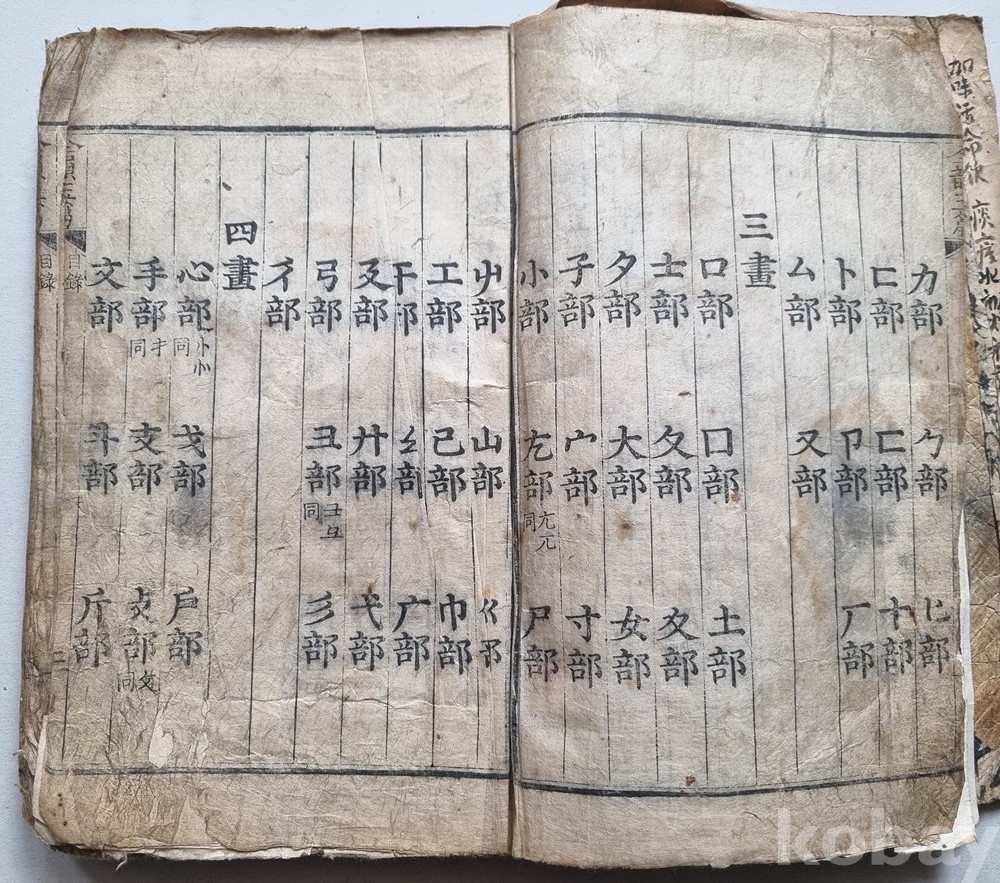 加味活命飲
力部 勹部 匕部
匚部 匸部 十部
卜部 卩部 厂部
厶部 又部
三畫
口部 囗部 土部
士部 夂部 夊部
夕部 大部 女部
子部 宀部 寸部
小部 尢部 尣兀同 尸部
屮部 山部 巛部
工部 己部 巾部
干部 幺部 广部
廴部 廾部 弋部
弓部 彐部 彑同 彡部
彳部
四畫
心部 忄㣺同 戈部 戶部
手部 扌同 支部 攴部 攵同
文部 斗部 斤部
目錄
目錄
kobay